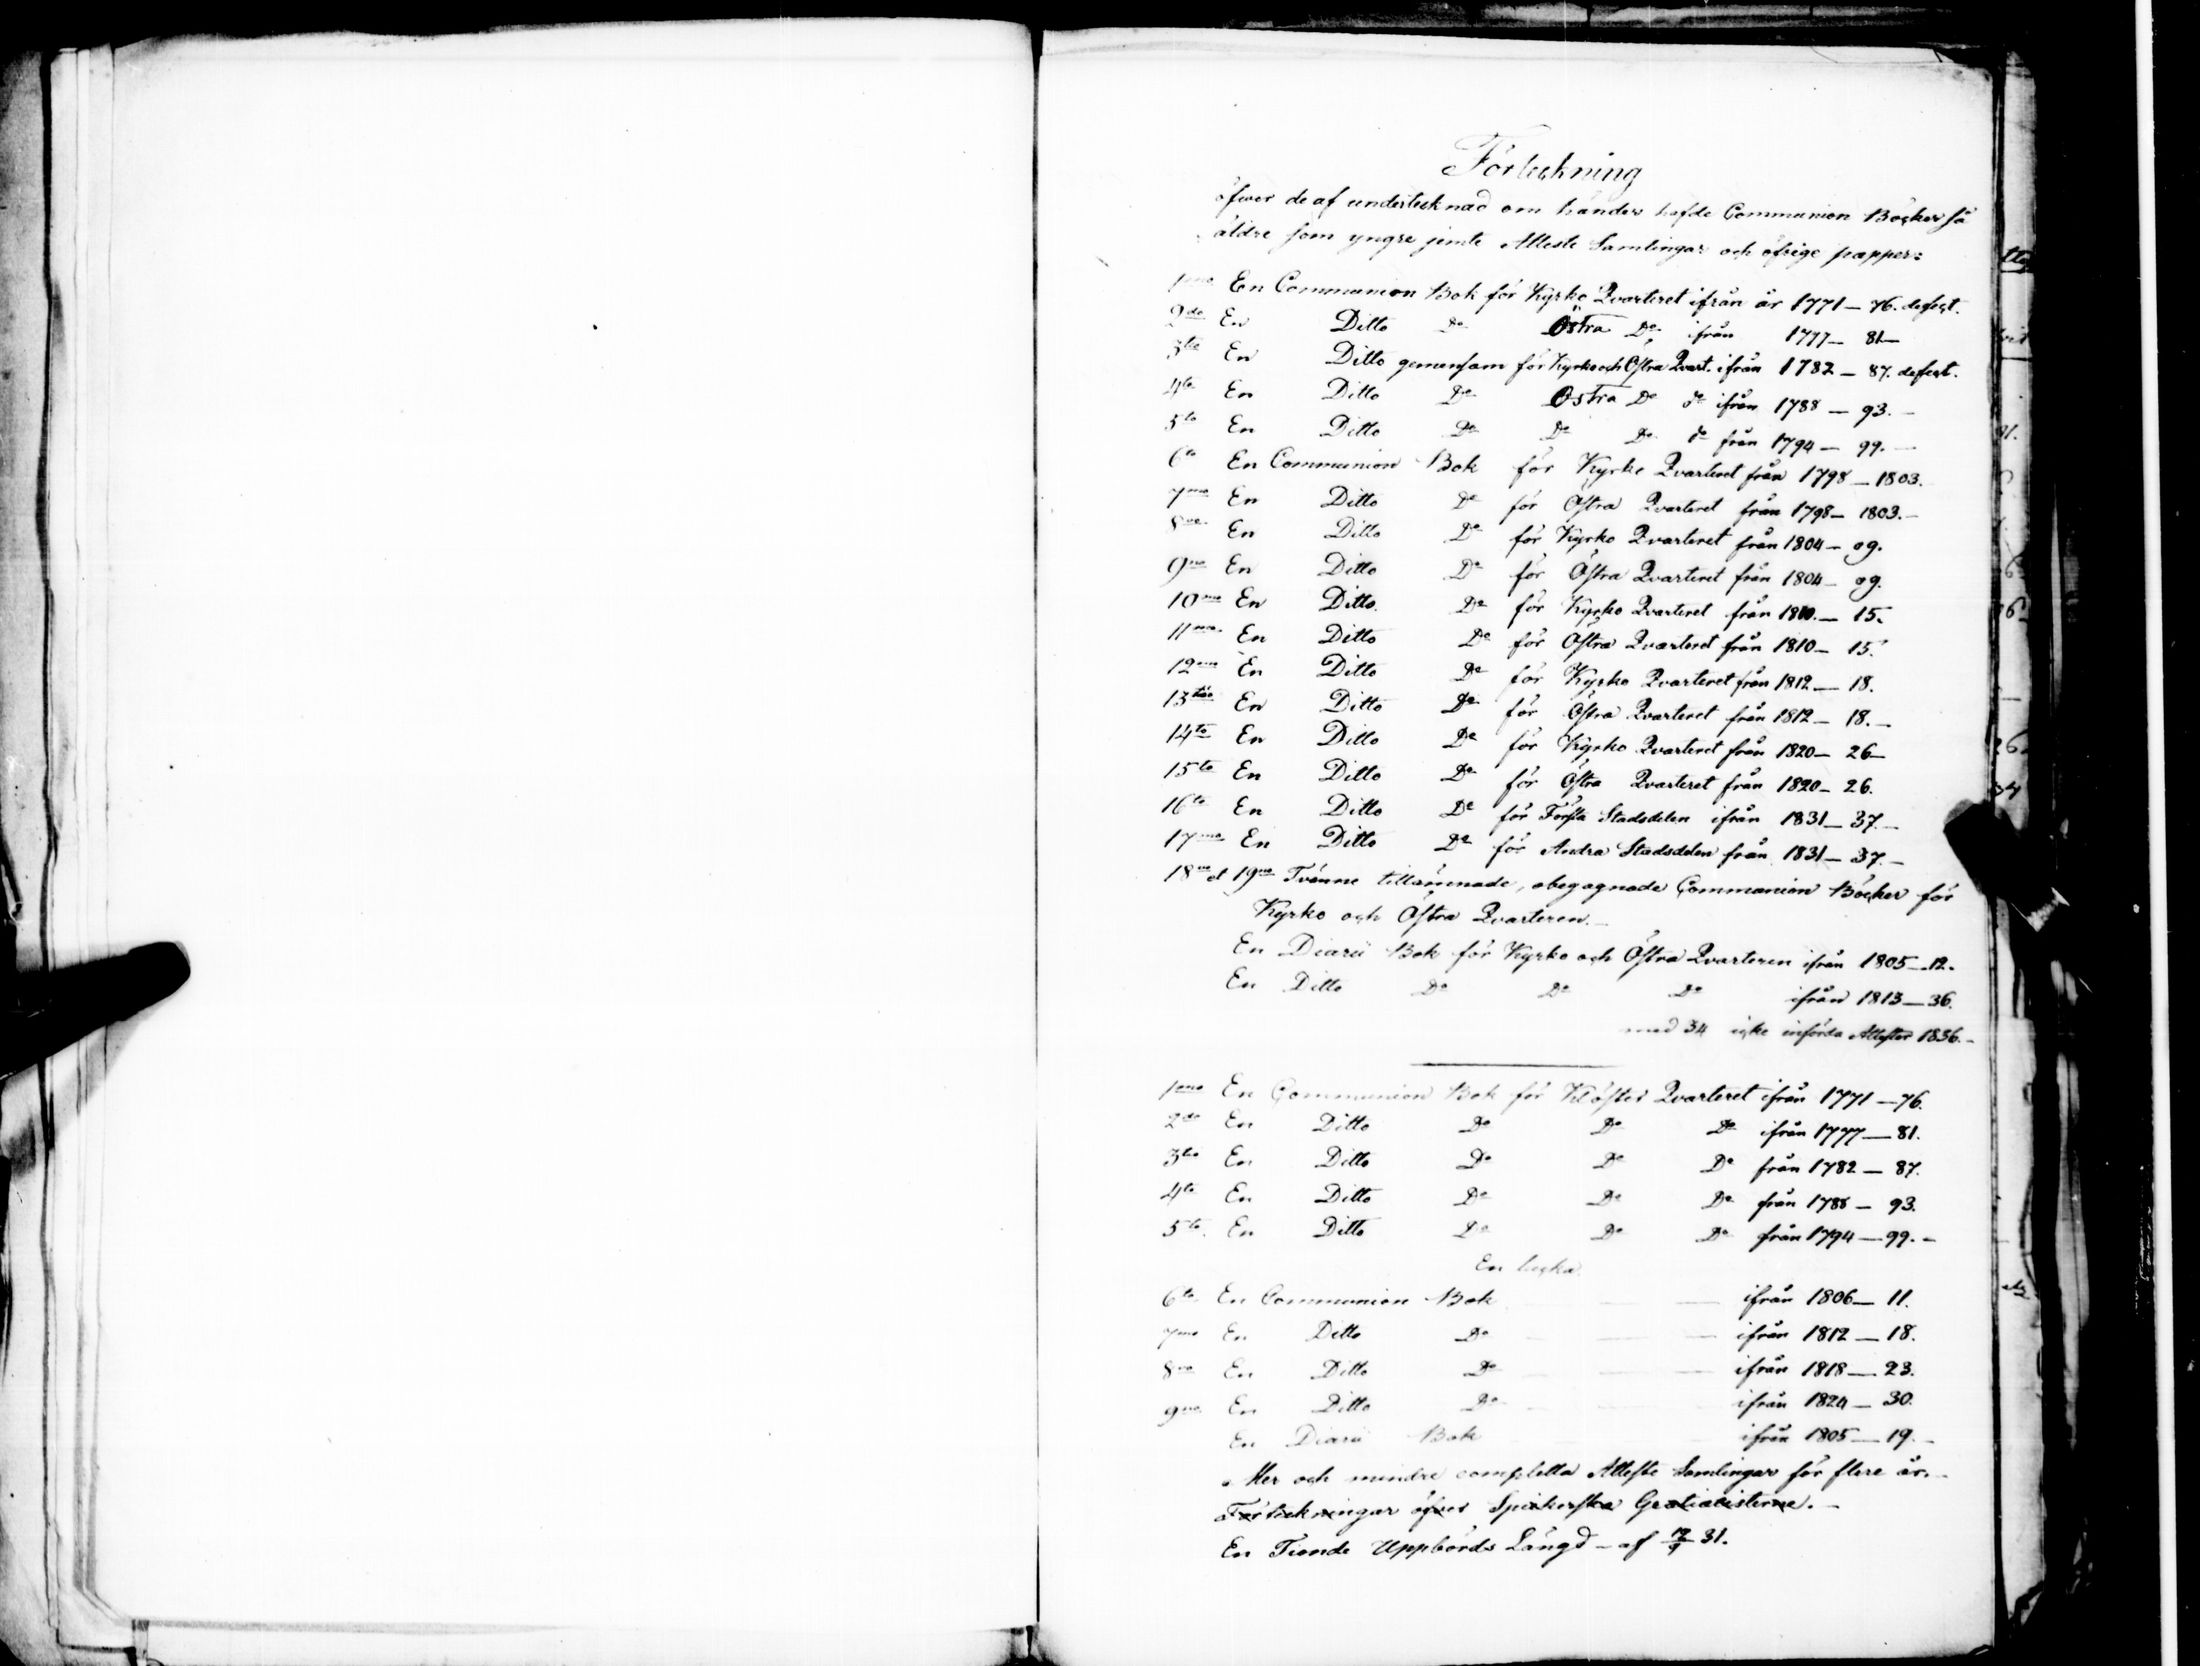 Förteckning
öfwer de af undertecknad om händer hafde Communion Böcker så
äldre som yngre jemte Atteste Samlingar och öfrige papper:
1mo En Communion Bok för Kyrko Qvarteret ifrån år 1771 – 76. defect.
2do En Ditto Do Östra Do ifrån 1777 – 81 –
3tio En Ditto gemensam för Kyrko och Östra Qvart. ifrån 1782 – 87. defect.
4to En Ditto Do Östra Do do ifrån 1788 – 93. –
5to En Ditto Do Do Do do från 1794 – 99. –
6to En Communion Bok för Kyrko Qvarteret från 1798 – 1803.
7mo En Ditto Do för Östra Qvarteret från 1798 – 1803. –
8vo En Ditto Do för Kyrko Qvarteret från 1804 – 09.
9no En Ditto Do för Östra Qvarteret från 1804 – 09.
10mo En Ditto Do för Kyrko Qvarteret från 1810. – 15.
11mo En Ditto Do för Östra Qvarteret från 1810 – 15.
12mo En Ditto Do för Kyrko Qvarteret från 1812 – 18.
13tio En Ditto Do för Östra Qvarteret från 1812 – 18. –
14to En Ditto Do för Kyrko Qvarteret från 1820 – 26 –
15to En Ditto Do för Östra Qvarteret från 1820 – 26.
16to En Ditto Do för Första Stadsdelen ifrån 1831 – 37. –
17mo En Ditto Do för Andra Stadsdelen från 1831 – 37. –
18vo et 19no Tvänne tillämnade, obegagnade Communion Böcker för
Kyrko och Östra Qvarteren. –
En Diarii Bok för Kyrko och Östra Qvarteren ifrån 1805 – 12.
En Ditto Do Do Do ifrån 1813 – 36.
med 34 icke införda Attester 1836. –
1mo En Communion Bok för Klöster Qvarteret ifrån 1771 – 76.
2do En Ditto Do Do Do ifrån 1777 – 81.
3tio En Ditto Do Do Do från 1782 – 87.
4to En Ditto Do Do Do från 1788 – 93.
5to En Ditto Do Do Do från 1794 – 99. –
En
6to En Communion Bok ifrån 1806 – 11.
7mo En Ditto Do ifrån 1812 – 18.
8vo En Ditto Do ifrån 1818 – 23.
9no En Ditto Do ifrån 1824 – 30.
En Diarii Bok ifrån 1805 – 19. –
Mer och mindre completta Atteste Samlingar för flere år. –
Förteckningar öfver Spikerska Gratialisterne. –
En Tionde Uppbörds Längd – af 31.